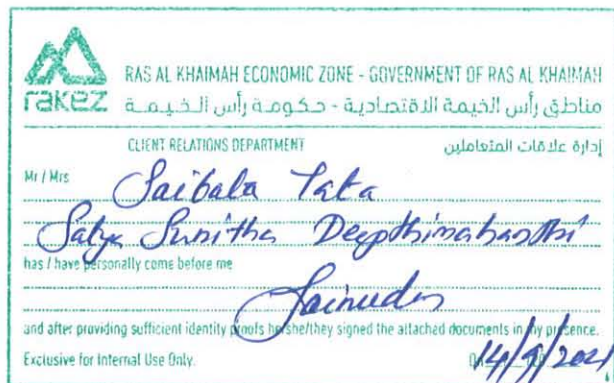 rakez
RAS AL KHAIMAH ECONOMIC ZONE - GOVERNMENT OF RAS AL KHAIMAH
مناطق رأس الخيمة الاقتصادية - حكومة رأس الخيمة
CLIENT RELATIONS DEPARTMENT إدارة علاقات المتعاملين
Mr / Mrs Saibala Tata
Satya Sunitha Deepthimahanthi
has / have personally come before me
Sainudeen
and after providing sufficient identity proofs he/she/they signed the attached documents in my presence.
Exclusive for Internal Use Only. 14/9/2021